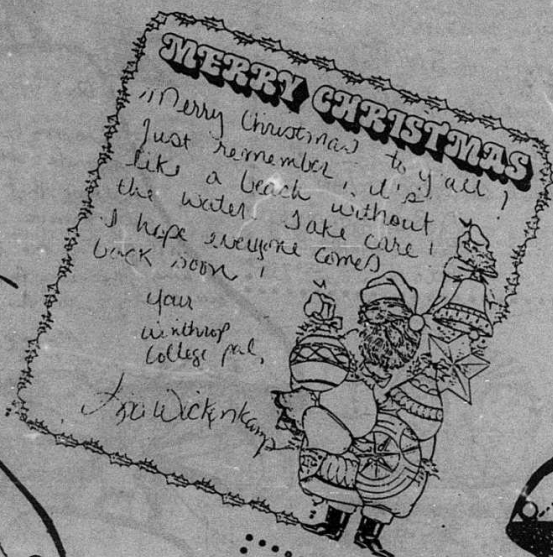 MERRY CHRISTMAS
"Merry Christmas to y'all!
Just remember, it's
like a beach without
the water. Take care!
I hope everyone comes
back soon!
Your
Winthrop
College pal,
Wickenkamp